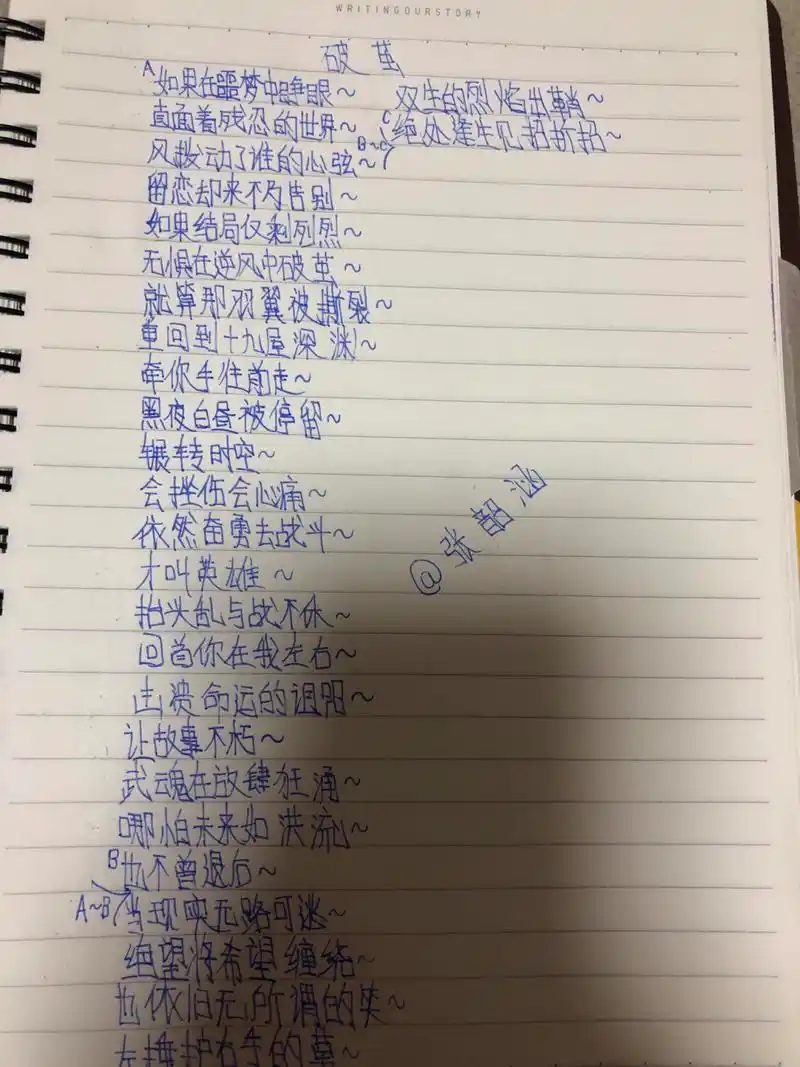 WRITINGOURSTORY
破茧
A 如果在噩梦中睁眼~
直面着残忍的世界~
风拨动了谁的心弦~
留恋却来不及告别~
如果结局仅剩烈
无惧在逆风中破茧~
就算那羽翼被撕裂~
重回到十九层深渊~
牵你手往前走~
黑夜白昼被停留~
辗转时空~
会挫伤会心痛~
依然奋勇去战斗~
才叫英雄~
抬头乱与战不休~
回首你在我左右~
击溃命运的诅咒~
让故事不朽~
武魂在放肆狂涌~
哪怕未来如洪流~
B 也不曾退后~
A~B 当现实无路可逃~
绝望将希望缠绕~
也依旧无所谓的笑~
左 护右手的
双生的烈焰出鞘~
C
B~C 绝处逢生见招折招~
@张韶涵